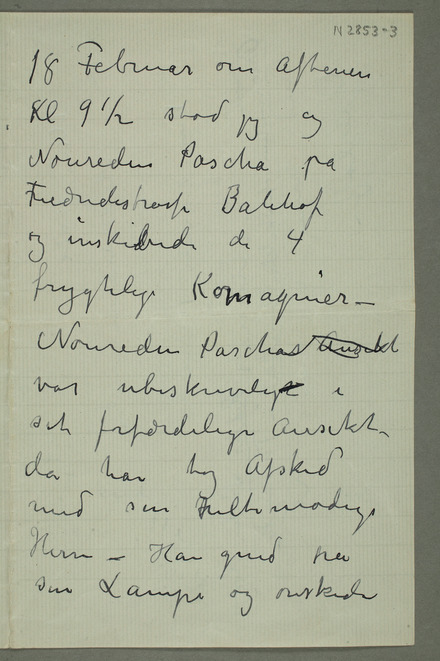 N 2853-3
18 Februar om Aftenen
Kl 9 1/2 stod jeg og
Noureden Pascha på
Fredrichstrasse Bahhof
og ønskede de 4
frygtelige Kompagnier –
Noureden Paschas Ansikt
var ubeskrivelig i
sit forfærdelige Ansikt –
da han tog Afsked
med sin
Herre – Han gned
sin Lampe og ønskede